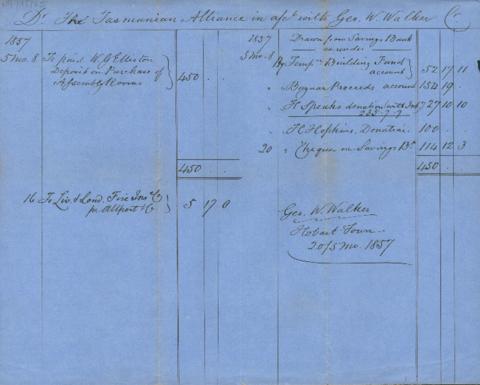 Dr. The Tasmanian Alliance in a/c with Geo. W. Walker Cr.
1857
5 mo. 8 To paid W. G. Elliston
Deposit on Purchase of
Assembly Rooms 450 . .
450 . .
16 To Liv. & Lond. Fire Insce Co
pr. Allport & Co 5 17 0
1857 Drawn from Savings Bank
as under
5 mo. 8 By Tempce Building Fund
account 52 17 11
" Bazaar Proceeds account 154 19 .
" H Speaks donation with Int 27 10 10
235.7.9
" H. Hopkins, Donation 100 . .
20 " Cheque on Savings Bk 114 12 3
450 . .
Geo. W. Walker
Hobart Town
20/5 mo. 1857